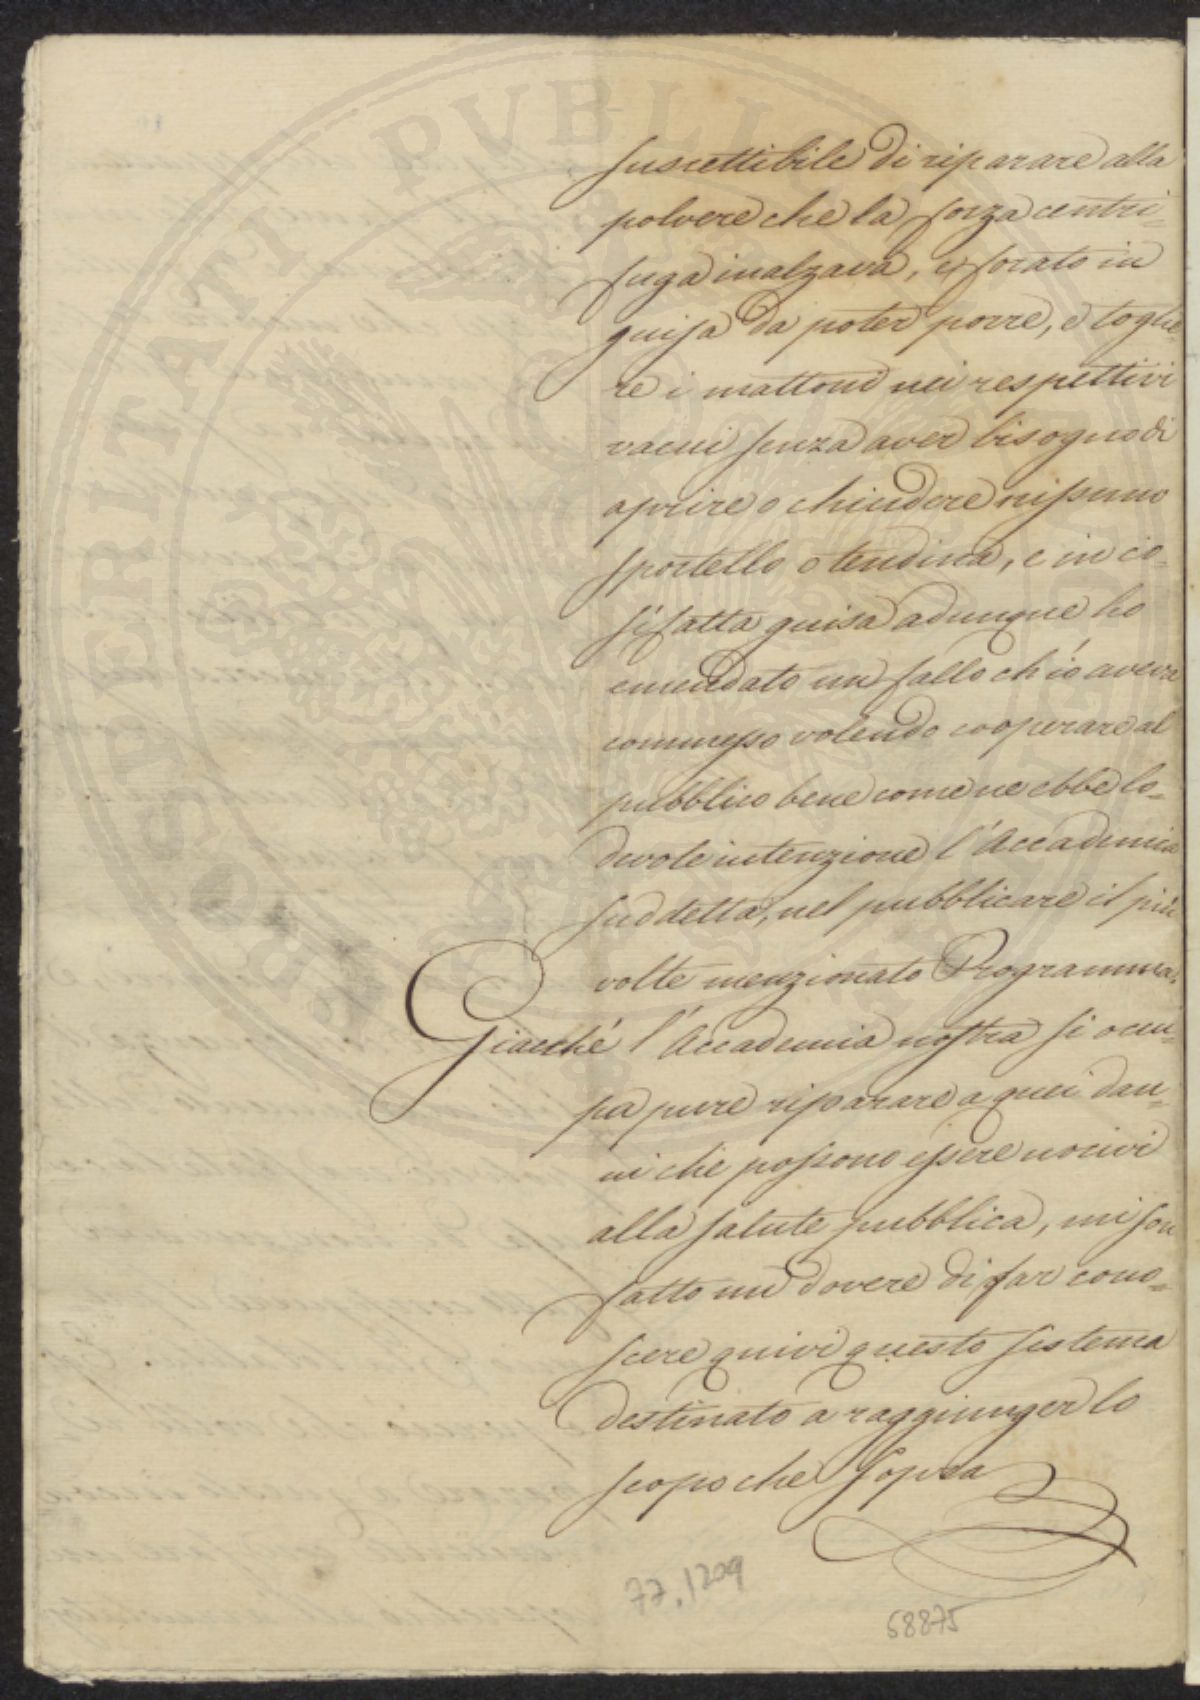 suscettibile di riparare alla
polvere che la forza centri=
fuga inalzava, e forato in
guisa da poter porre, e toglie=
re i mattoni nei respettivi
vacui senza aver bisogno di
aprire o chiudere nissuno
sportello o tendina, e in co=
sifatta guisa adunque ho
emendato un fallo ch'io aveva
commesso volendo cooperare al
pubblico bene come ne ebbe lo=
devole intenzione l'Accademia
suddetta, nel pubblicare il più
volte menzionato Programma.
Giacché l'Accademia nostra si occu=
pa pure riparare a quei dan=
ni che possono essere nocivi
alla salute pubblica, mi son
fatto un dovere di far cono=
scere quivi questo sistema
destinato a raggiunger lo
scopo che sopra
77.1209
68875
PROSPERITATI PUBLICAE